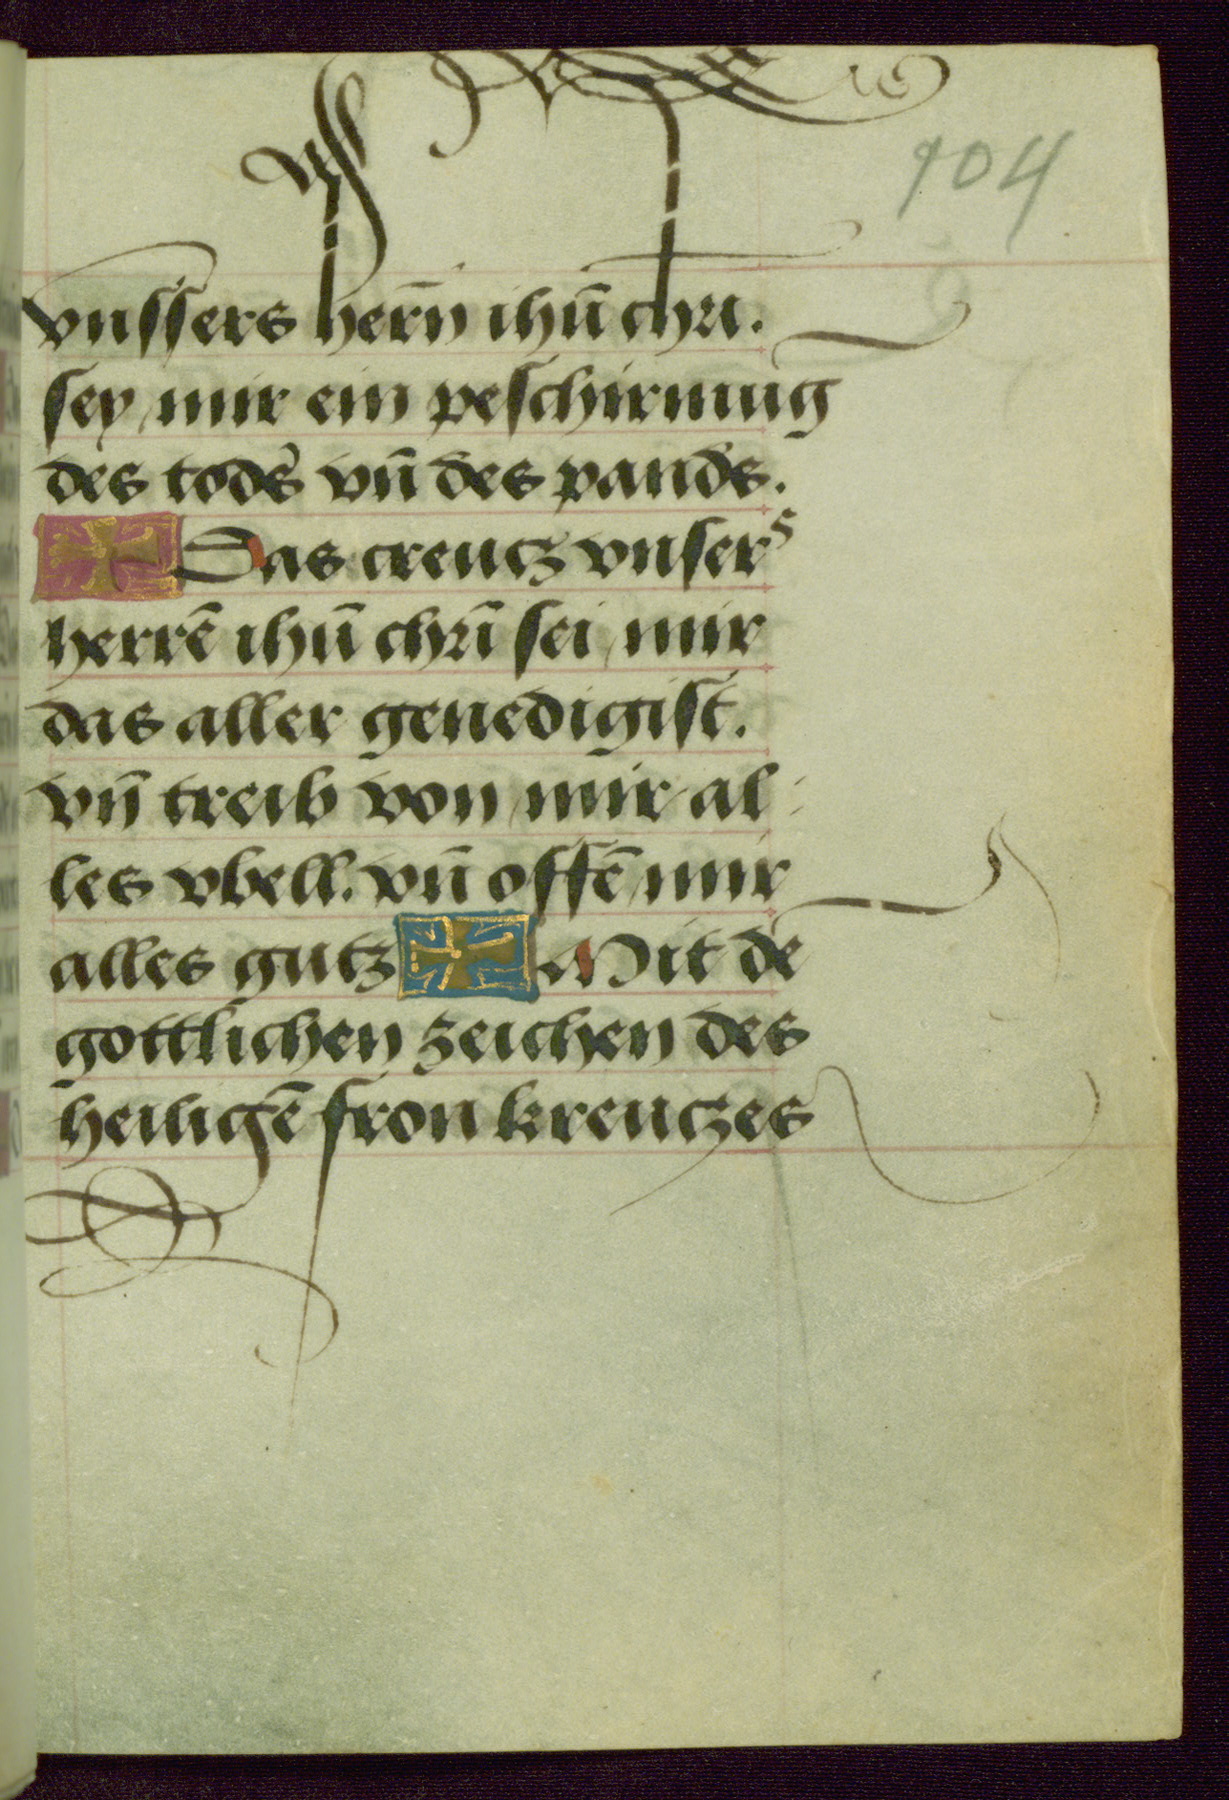 104
vnssers herñ ihū chrı.
sey mir ein peschirmug
des tods vn̄ des pands.
Das creutz vnsers
herrē ihū chrī sei mir
das aller genedigist.
vn̄ treib von mir al
les vbell. vn̄ offē mir
alles gutz Mit dē
gottlichen zeichen des
heiligē fron kreutzes